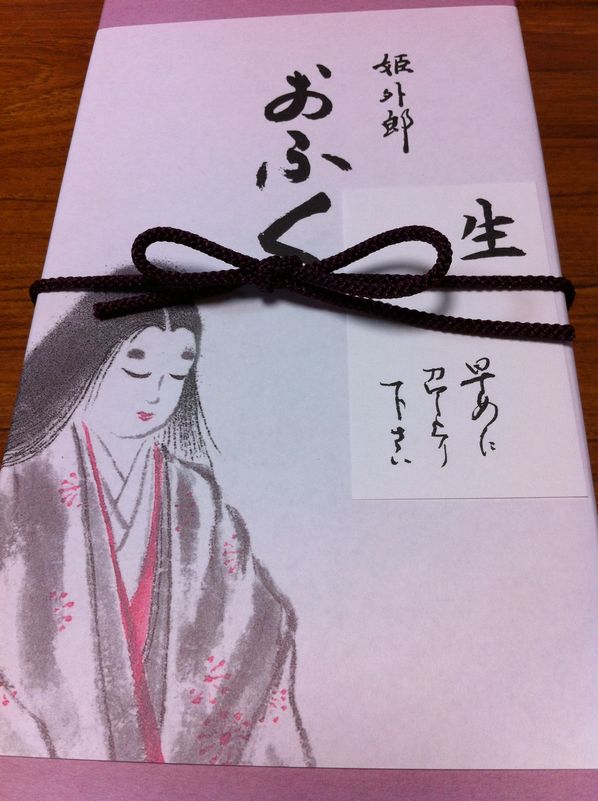 姫外郎
おふく
生
早めに
召し上り
下さい